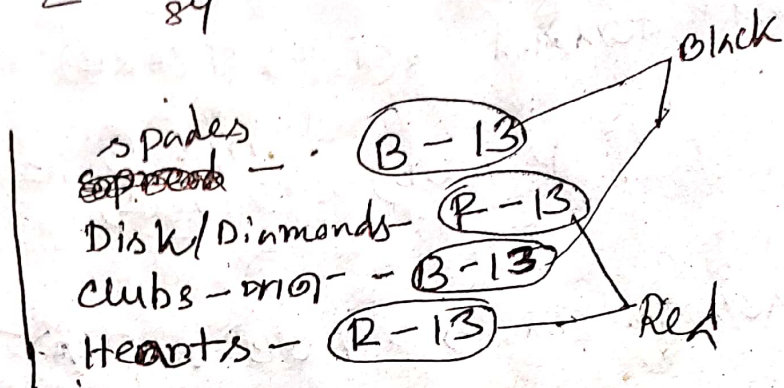 84
Black
spades - . B - 13
Disk/Diamonds - R - 13
Clubs - - - B - 13
Hearts - R - 13
Red